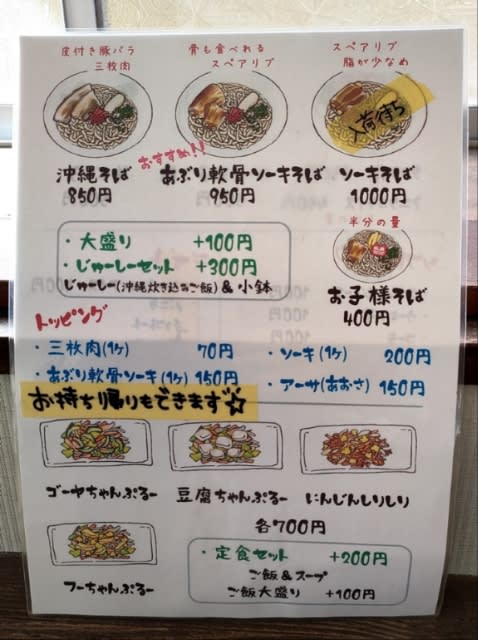 皮付き豚バラ
三枚肉
骨も食べれる
スペアリブ
スペアリブ
脂が少なめ
入荷待ち
沖縄そば
850円
おすすめ!!
あぶり軟骨ソーキそば
950円
ソーキそば
1000円
・大盛り +100円
・じゅーしーセット +300円
じゅーしー(沖縄炊き込みご飯)&小鉢
半分の量
お子様そば
400円
トッピング
・三枚肉(1ヶ) 70円
・ソーキ(1ヶ) 200円
・あぶり軟骨ソーキ(1ヶ) 150円
・アーサ(あおさ) 150円
お持ち帰りもできます☆
ゴーヤちゃんぷるー
豆腐ちゃんぷるー
にんじんしりしり
各700円
フーちゃんぷるー
・定食セット +200円
ご飯&スープ
ご飯大盛り +100円